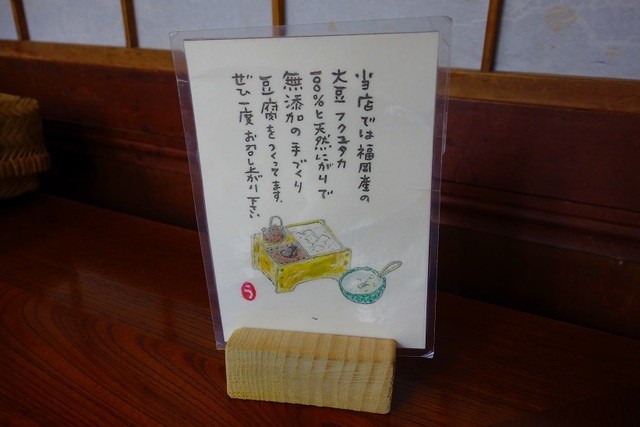 当店では福岡産の
大豆フクユタカ
100%と天然にがりで
無添加の手づくり
豆腐をつくってます。
ぜひ一度お召し上がり下さい。
う